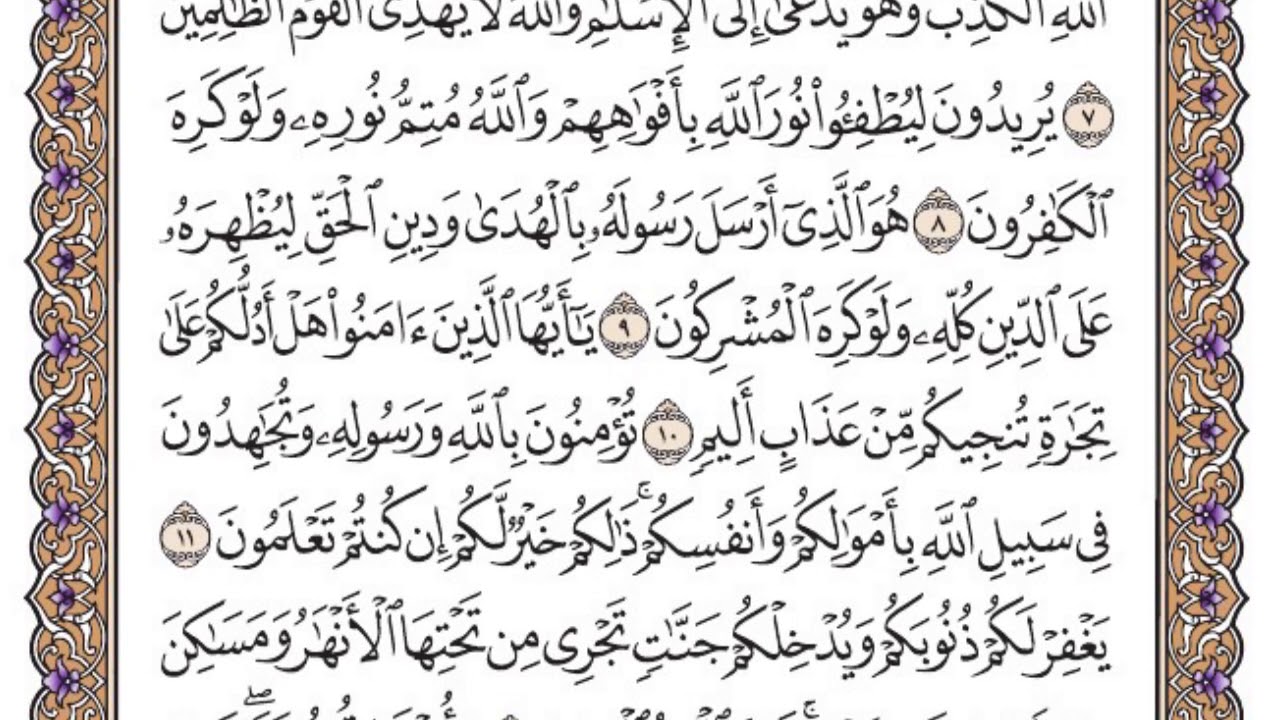 ٱللَّهِ ٱلْكَذِبَ وَهُوَ يُدْعَىٰٓ إِلَى ٱلْإِسْلَٰمِ وَٱللَّهُ لَا يَهْدِى ٱلْقَوْمَ ٱلظَّٰلِمِينَ
٧ يُرِيدُونَ لِيُطْفِـُٔوا۟ نُورَ ٱللَّهِ بِأَفْوَٰهِهِمْ وَٱللَّهُ مُتِمُّ نُورِهِۦ وَلَوْ كَرِهَ
ٱلْكَٰفِرُونَ ٨ هُوَ ٱلَّذِىٓ أَرْسَلَ رَسُولَهُۥ بِٱلْهُدَىٰ وَدِينِ ٱلْحَقِّ لِيُظْهِرَهُۥ
عَلَى ٱلدِّينِ كُلِّهِۦ وَلَوْ كَرِهَ ٱلْمُشْرِكُونَ ٩ يَٰٓأَيُّهَا ٱلَّذِينَ ءَامَنُوا۟ هَلْ أَدُلُّكُمْ عَلَىٰ
تِجَٰرَةٍ تُنجِيكُم مِّنْ عَذَابٍ أَلِيمٍ ١٠ تُؤْمِنُونَ بِٱللَّهِ وَرَسُولِهِۦ وَتُجَٰهِدُونَ
فِى سَبِيلِ ٱللَّهِ بِأَمْوَٰلِكُمْ وَأَنفُسِكُمْ ۚ ذَٰلِكُمْ خَيْرٌ لَّكُمْ إِن كُنتُمْ تَعْلَمُونَ ١١
يَغْفِرْ لَكُمْ ذُنُوبَكُمْ وَيُدْخِلْكُمْ جَنَّٰتٍ تَجْرِى مِن تَحْتِهَا ٱلْأَنْهَٰرُ وَمَسَٰكِنَ